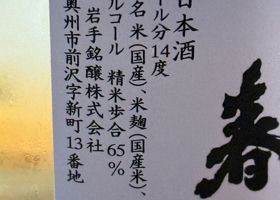 春
日本酒
ール分14度
名 米(国産)、米麹(国産米)、
ルコール 精米歩合65%
岩手銘醸株式会社
奥州市前沢字新町13番地